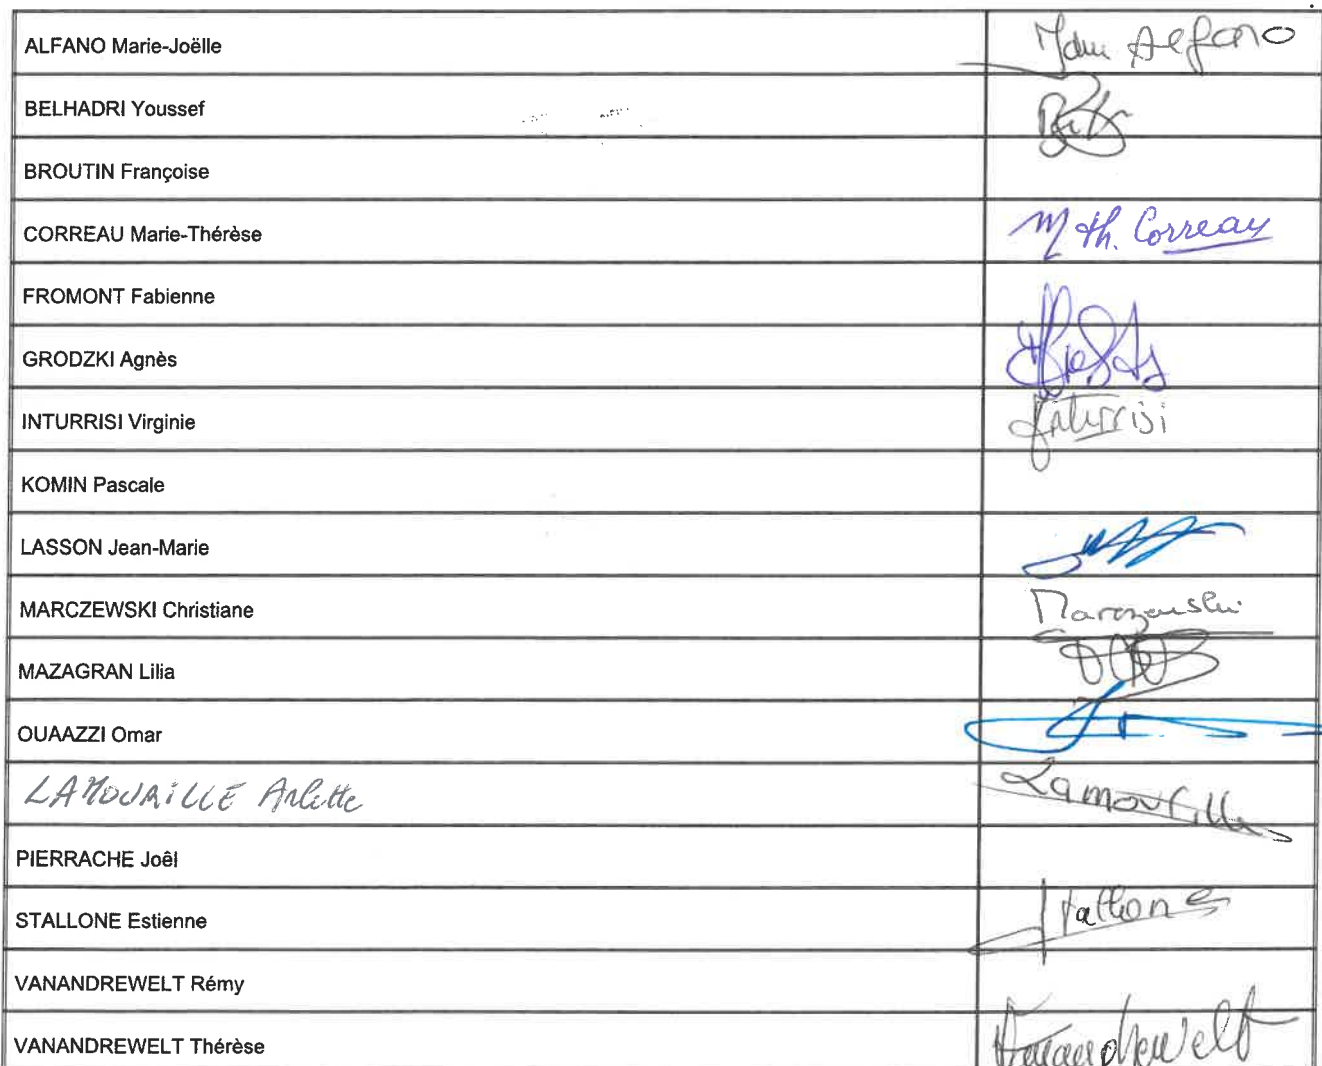 ALFANO Marie-Joëlle Alfano
BELHADRI Youssef
BROUTIN Françoise
CORREAU Marie-Thérèse M th. Correau
FROMONT Fabienne
GRODZKI Agnès
INTURRISI Virginie Inturrisi
KOMIN Pascale
LASSON Jean-Marie
MARCZEWSKI Christiane Marczewski
MAZAGRAN Lilia
OUAAZZI Omar
LAMOURILLE Arlette Lamourille
PIERRACHE Joël
STALLONE Estienne Stallone
VANANDREWELT Rémy
VANANDREWELT Thérèse Vanandrewelt